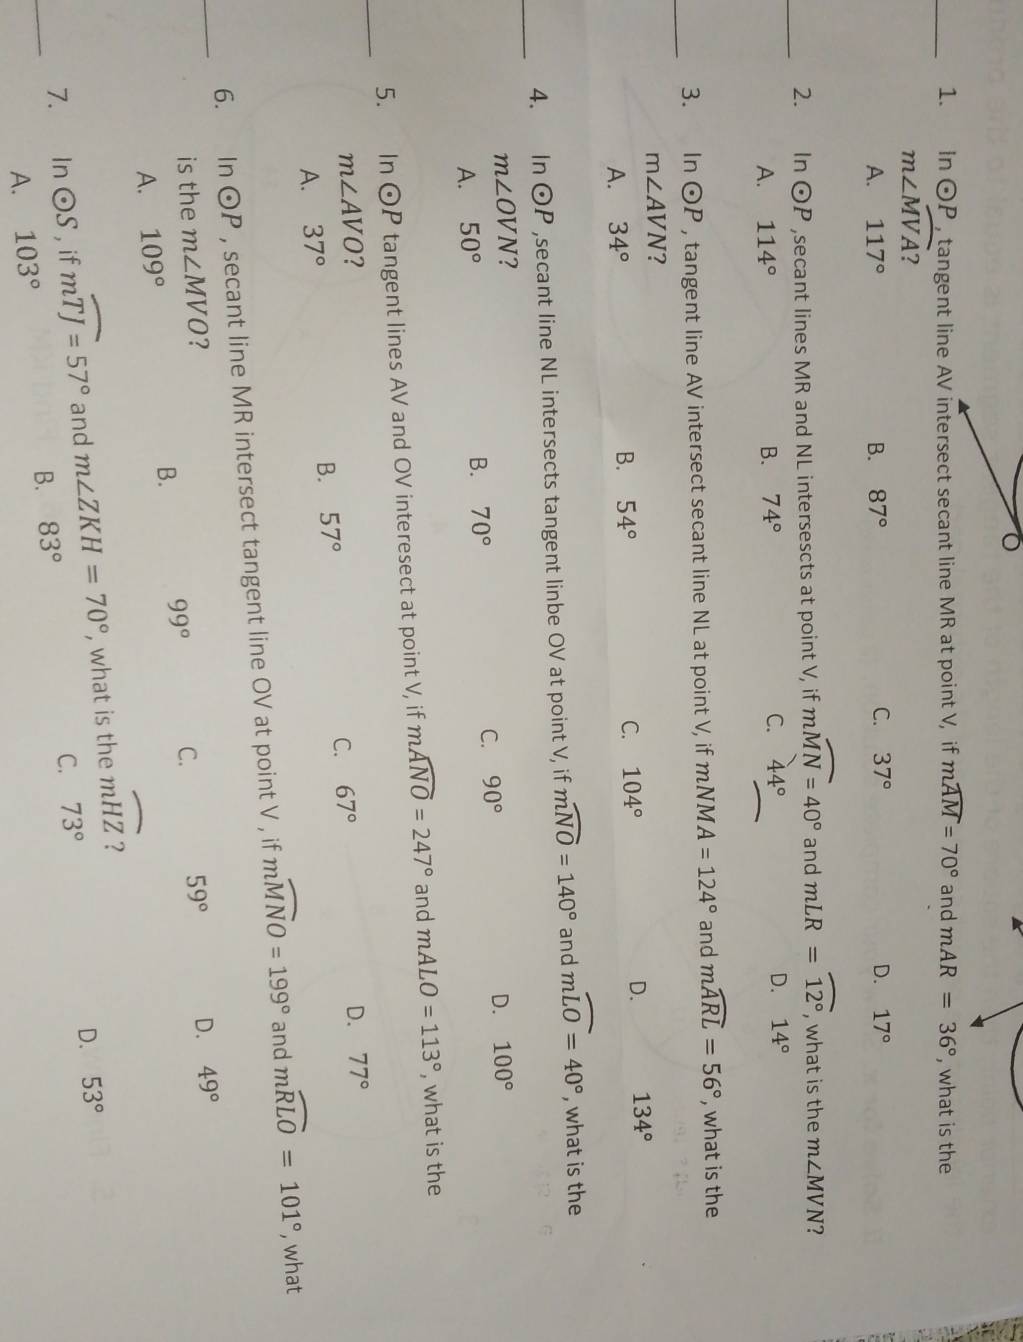 1. In ⊙P, tangent line AV intersect secant line MR at point V, if mAM = 70° and mAR = 36°, what is the
m∠MVA?
A. 117° B. 87° C. 37° D. 17°
2. In ⊙P ,secant lines MR and NL intersescts at point V, if mMN = 40° and mLR = 12°, what is the m∠MVN?
A. 114° B. 74° C. 44° D. 14°
3. In ⊙P , tangent line AV intersect secant line NL at point V, if mNMA = 124° and mARL = 56°, what is the
m∠AVN?
A. 34° B. 54° C. 104° D. 134°
4. In ⊙P ,secant line NL intersects tangent linbe OV at point V, if mNO = 140° and mLO = 40°, what is the
m∠OVN?
A. 50° B. 70° C. 90° D. 100°
5. In ⊙P tangent lines AV and OV interesect at point V, if mANO = 247° and mALO = 113°, what is the
m∠AVO?
A. 37° B. 57° C. 67° D. 77°
6. In ⊙P , secant line MR intersect tangent line OV at point V , if mMNO = 199° and mRLO = 101°, what
is the m∠MVO?
A. 109° B. 99° C. 59° D. 49°
7. In ⊙S , if mTJ = 57° and m∠ZKH = 70°, what is the mHZ ?
A. 103° B. 83° C. 73° D. 53°